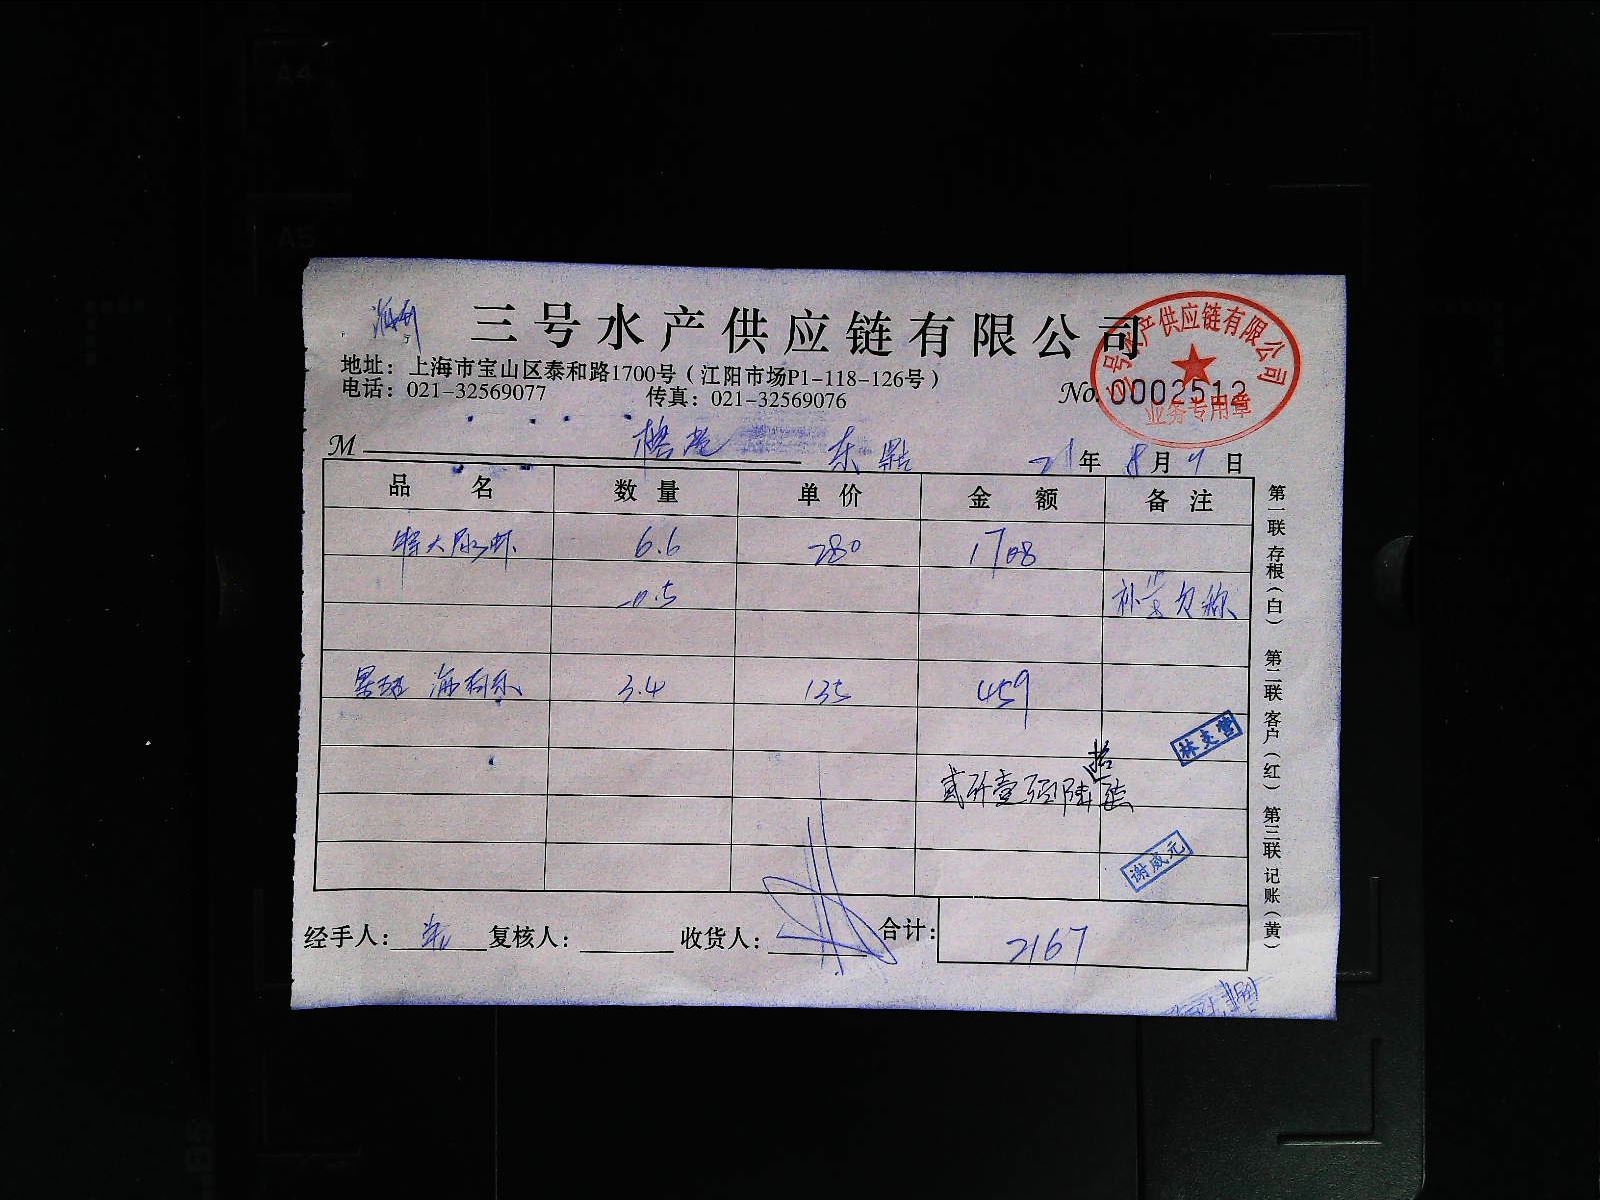 三号水产供应链有限公司
地址：上海市宝山区泰和路1700号（江阳市场P1-118-126号）
电话：021-32569077 传真：021-32569076
No. 0002512
三号水产供应链有限公司
业务专用章
M 东 21年8月 日
品名 数量 单价 金额 备注
特大尿虾 6.6 280 1708
-0.5 补 欠称
3.4 135 459
林支营
贰仟壹佰陆拾
谢威元
经手人： 复核人： 收货人： 合计： 2167
第一联 存根（白） 第二联 客户（红） 第三联 记账（黄）
A4
A5